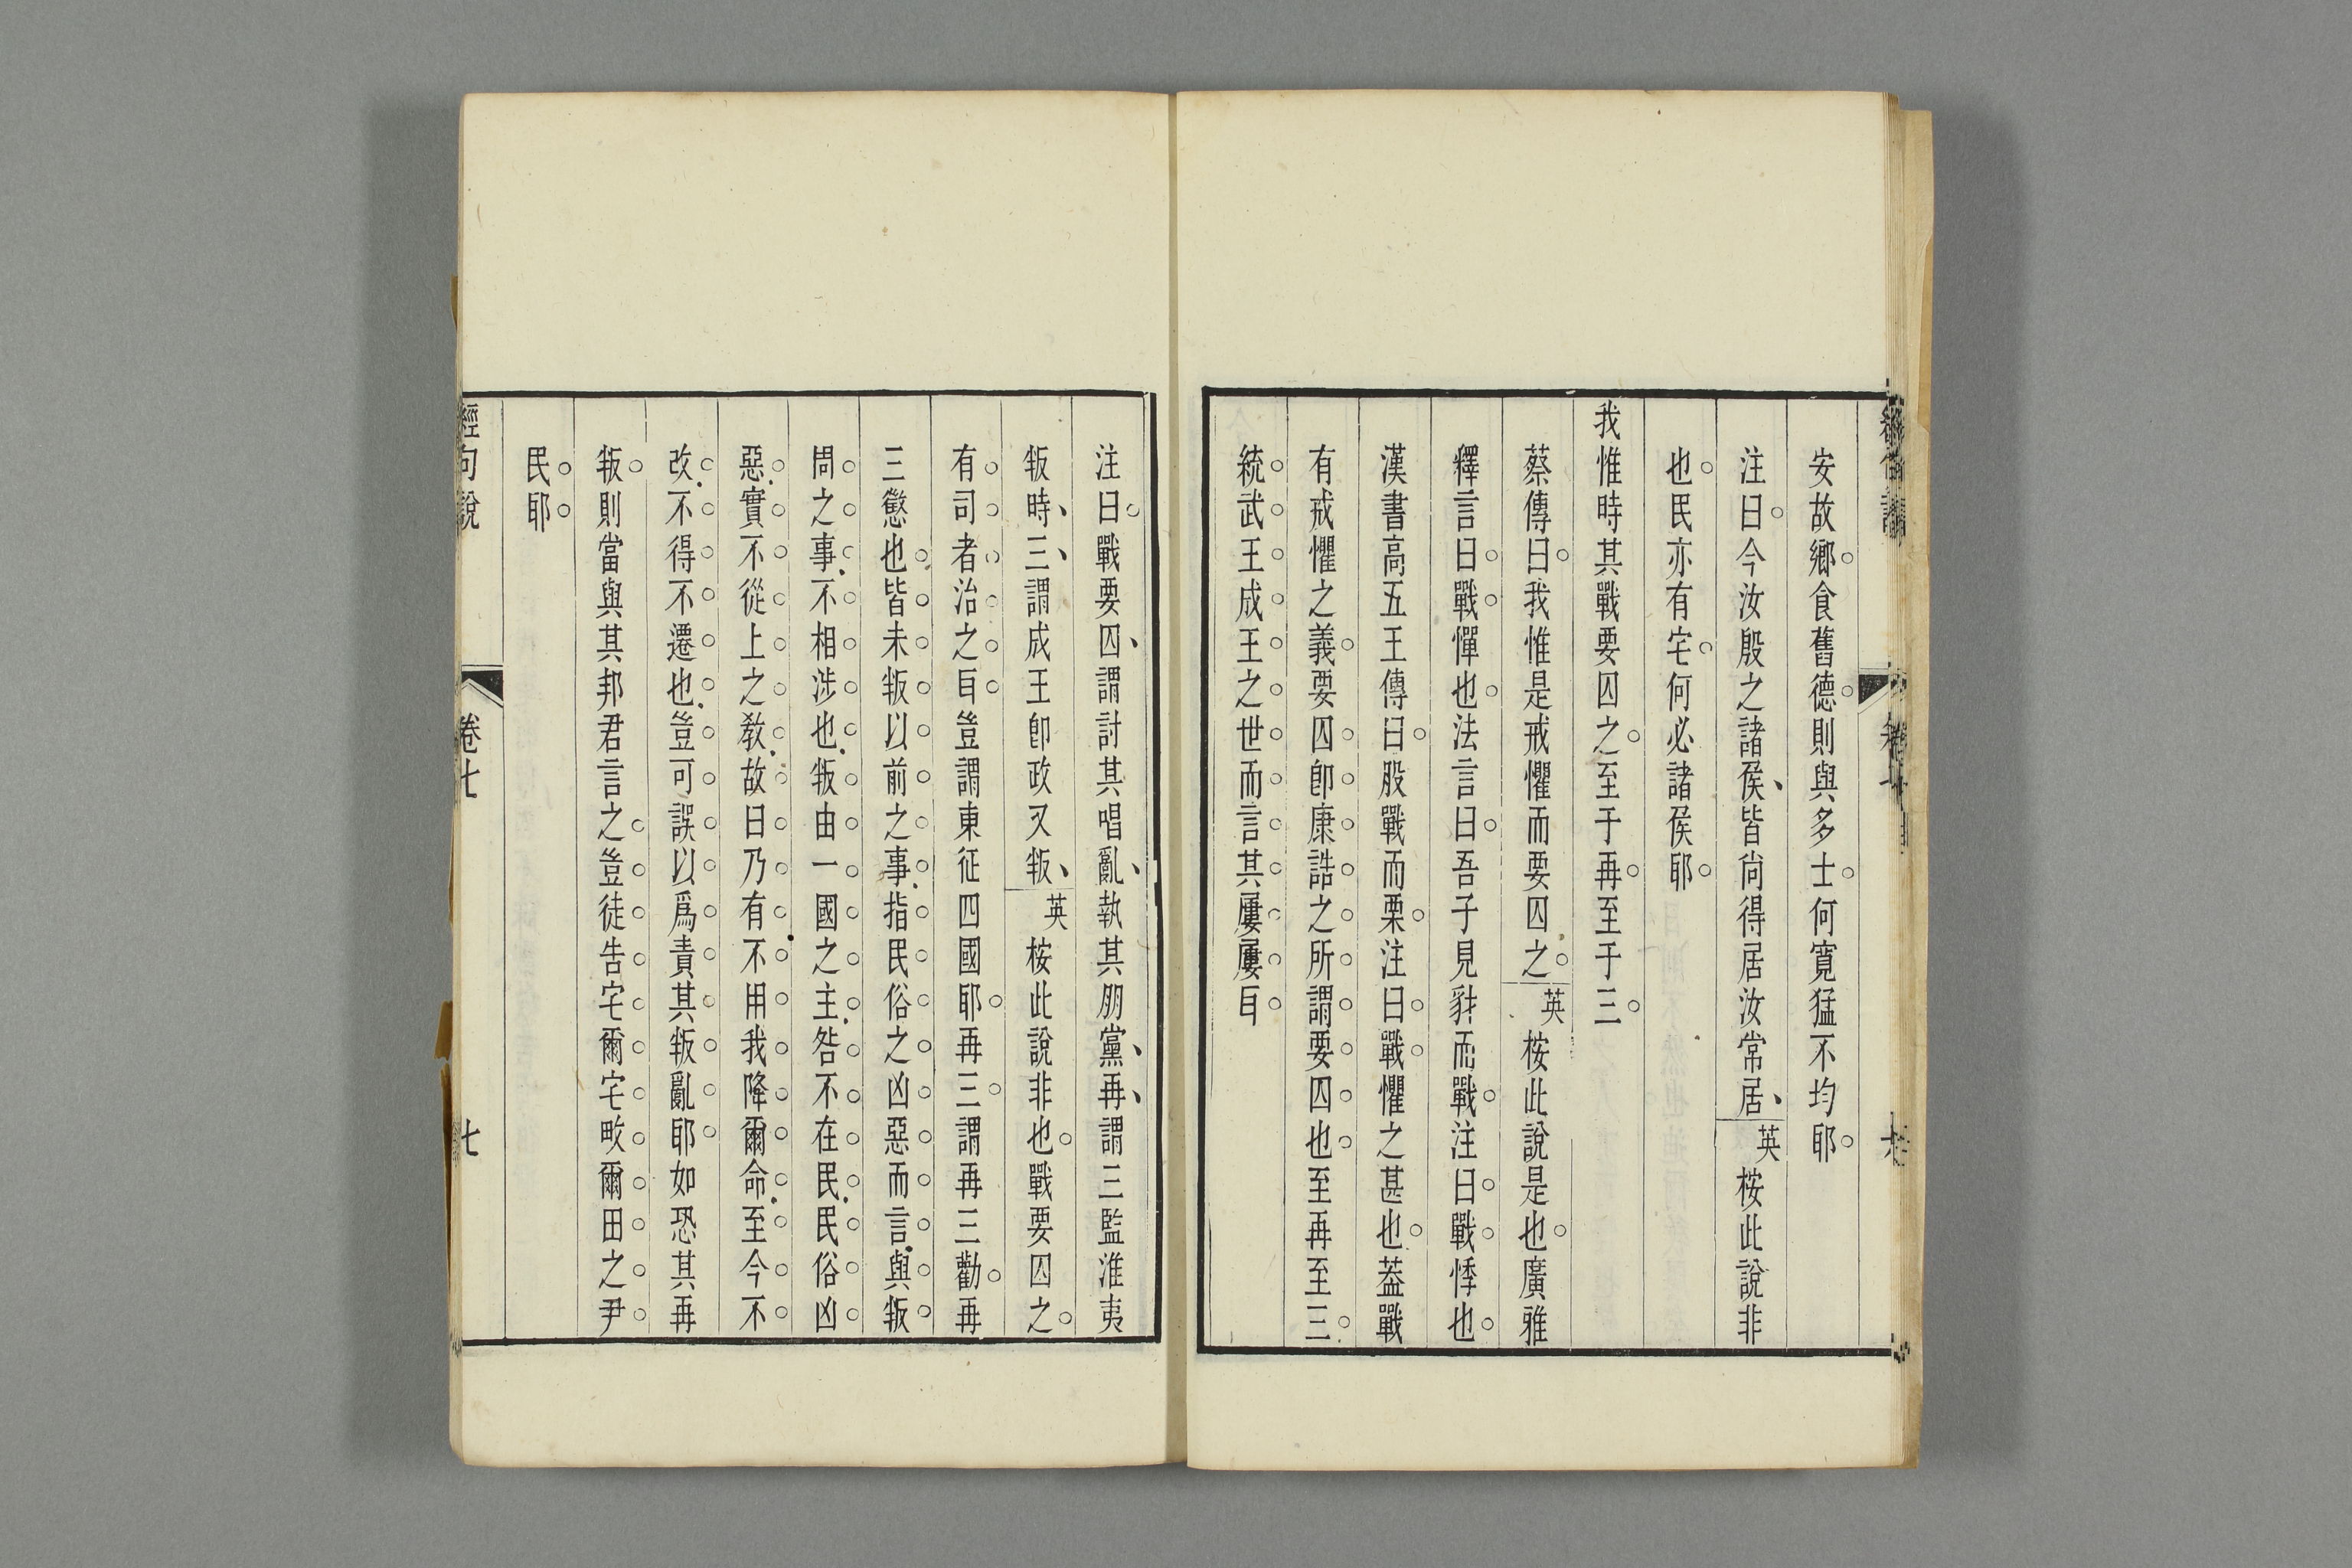 安故鄉食舊德則與多士何寬猛不均耶
注曰今汝殷之諸侯皆尙得居汝常居英桉此說非
也民亦有宅何必諸侯耶
我惟時其戰要囚之至于再至于三
蔡傳曰我惟是戒懼而要囚之英桉此說是也廣雅
釋言曰戰憚也法言曰吾子見豺而戰注曰戰悸也
漢書高五王傳曰股戰而栗注曰戰懼之甚也葢戰
有戒懼之義要囚卽康誥之所謂要囚也至再至三
統武王成王之世而言其屢屢耳
注曰戰要囚謂討其唱亂執其朋黨再謂三監淮夷
叛時三謂成王卽政又叛英桉此說非也戰要囚之
有司者治之耳豈謂東征四國耶再三謂再三勸再
三懲也皆未叛以前之事指民俗之凶惡而言與叛
周之事不相涉也叛由一國之主咎不在民民俗凶
惡實不從上之敎故曰乃有不用我降爾命至今不
改不得不遷也豈可誤以爲責其叛亂耶如恐其再
叛則當與其邦君言之豈徒告宅爾宅畋爾田之尹
民耶
經句說 卷七 七